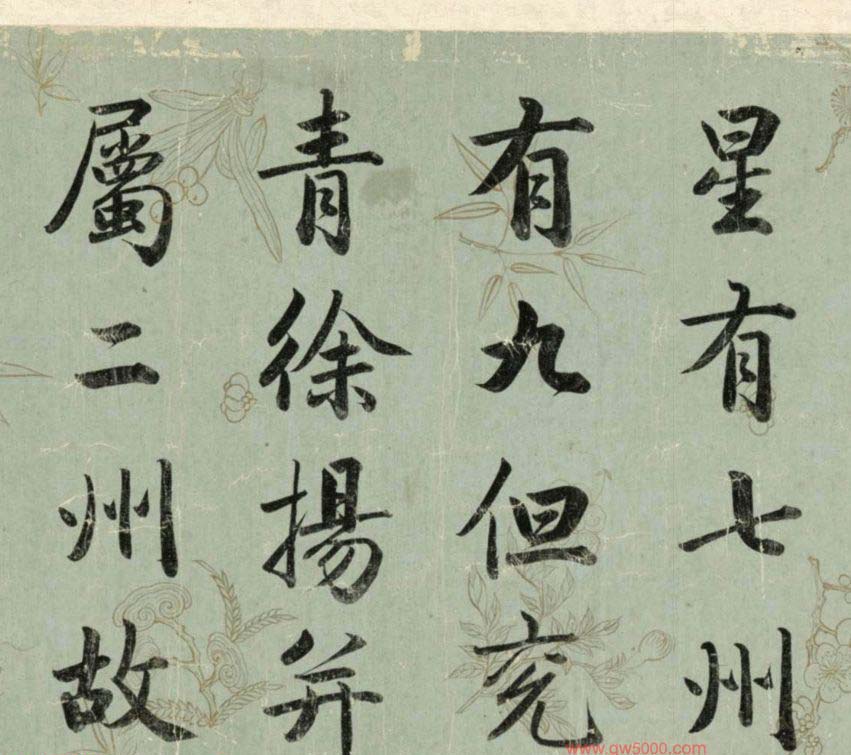 星有七州
有九但兖
青徐揚并
屬二州故
www.qw5000.com